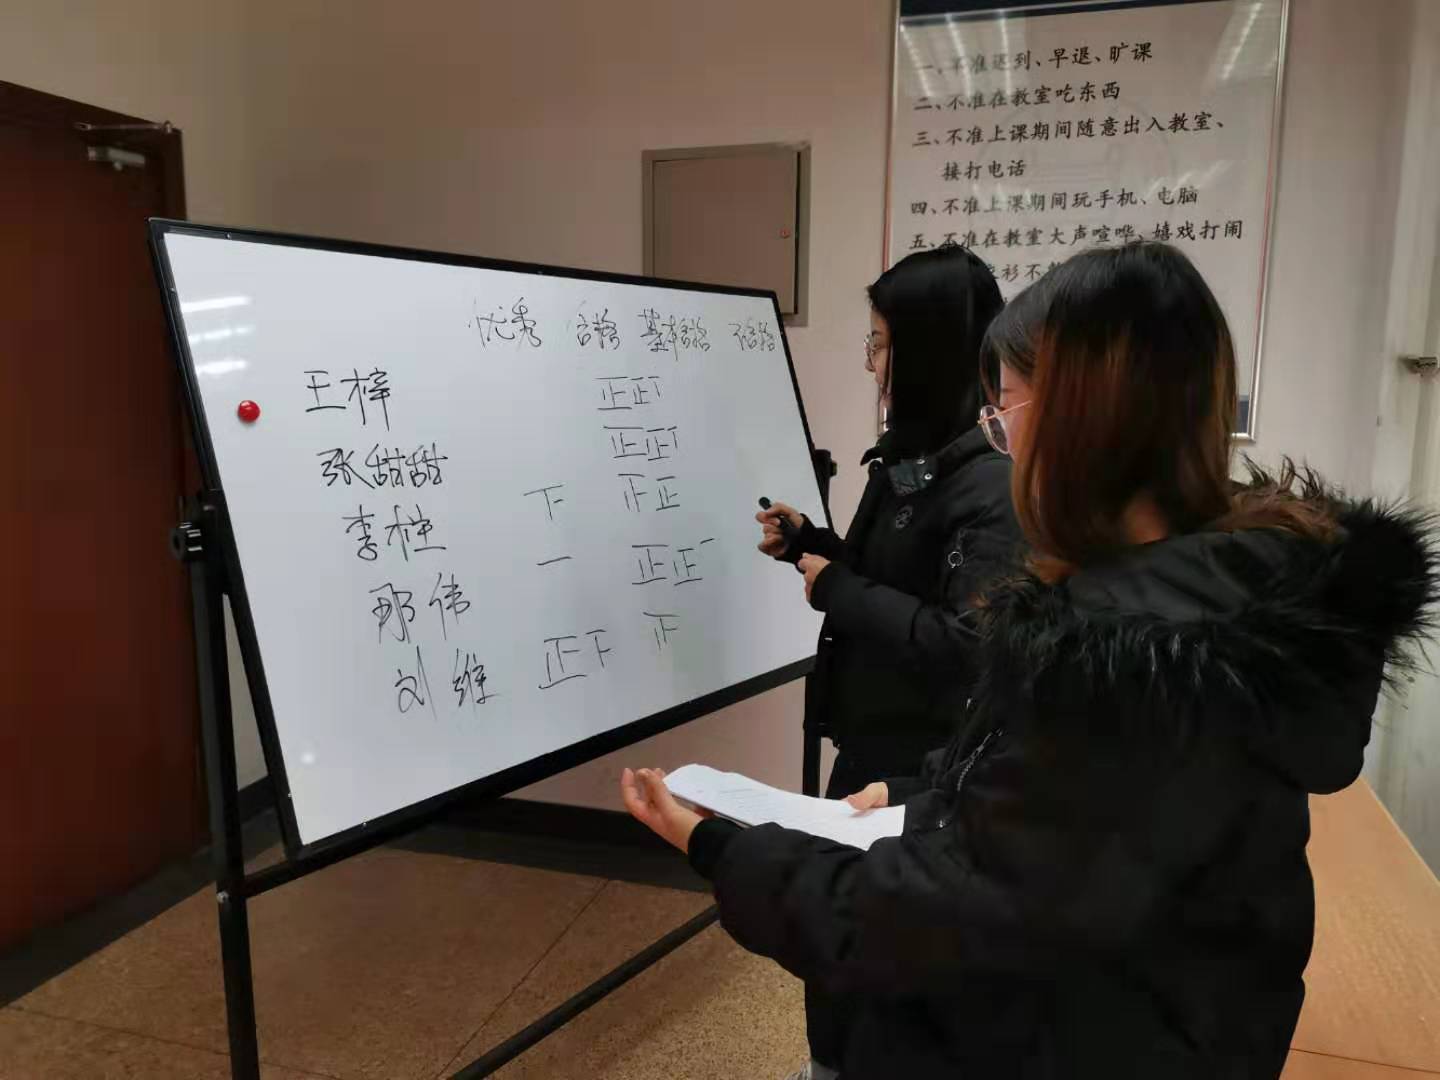 一、不准迟到、早退、旷课
二、不准在教室吃东西
三、不准上课期间随意出入教室、
接打电话
四、不准上课期间玩手机、电脑
五、不准在教室大声喧哗、嬉戏打闹
衫不
优秀 合格 基本合格 不合格
王梓 正正丅
张甜甜 正正丅
李柱 下 正正
那伟 一 正正一
刘维 正下 正